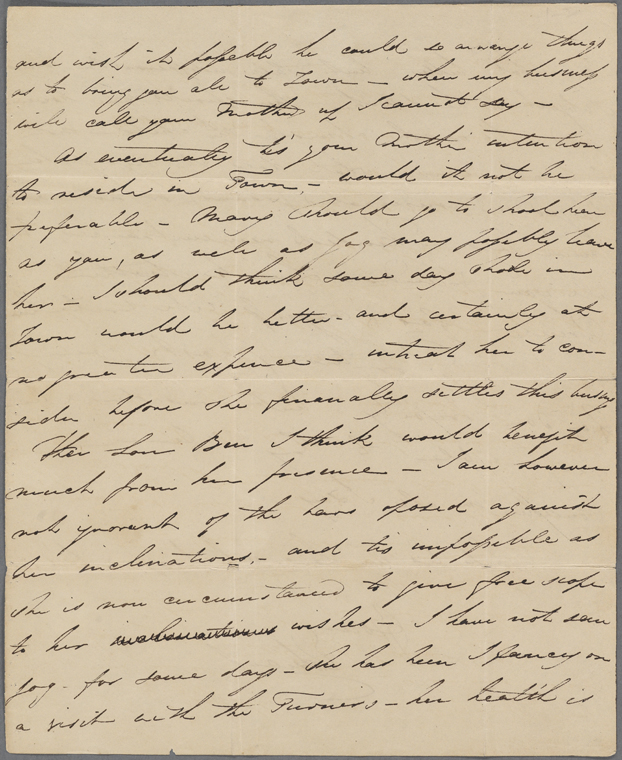 and wish it possible he could so arrange things
as to bring you all to Town – when my business
will call your Mother up I cannot say –
As eventually tis your Mothers intention
to reside in Town, – would it not be
preferable – Mary should go to school here
as you, as well as Jog may possibly leave
her – I should think some day school in
Town would be better – and certainly at
no greater expence – intreat her to con–
sider before she finanally settles this busing
Her son Ben I think would benefit
much from her presence – I am however
not ignorant of the bars oposed against
her inclinations, – and tis impossible as
she is now circumstanced to give free scope
to her inclinations wishes – I have not seen
Jog – for some days – She has been I fancy on
a visit with the Turners – her health is